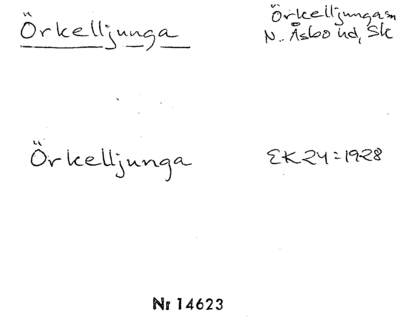 Örkelljunga
Örkelljunga sn
N. Åsbo hd, Sk
Örkelljunga
EK 24 = 1928
Nr 14623